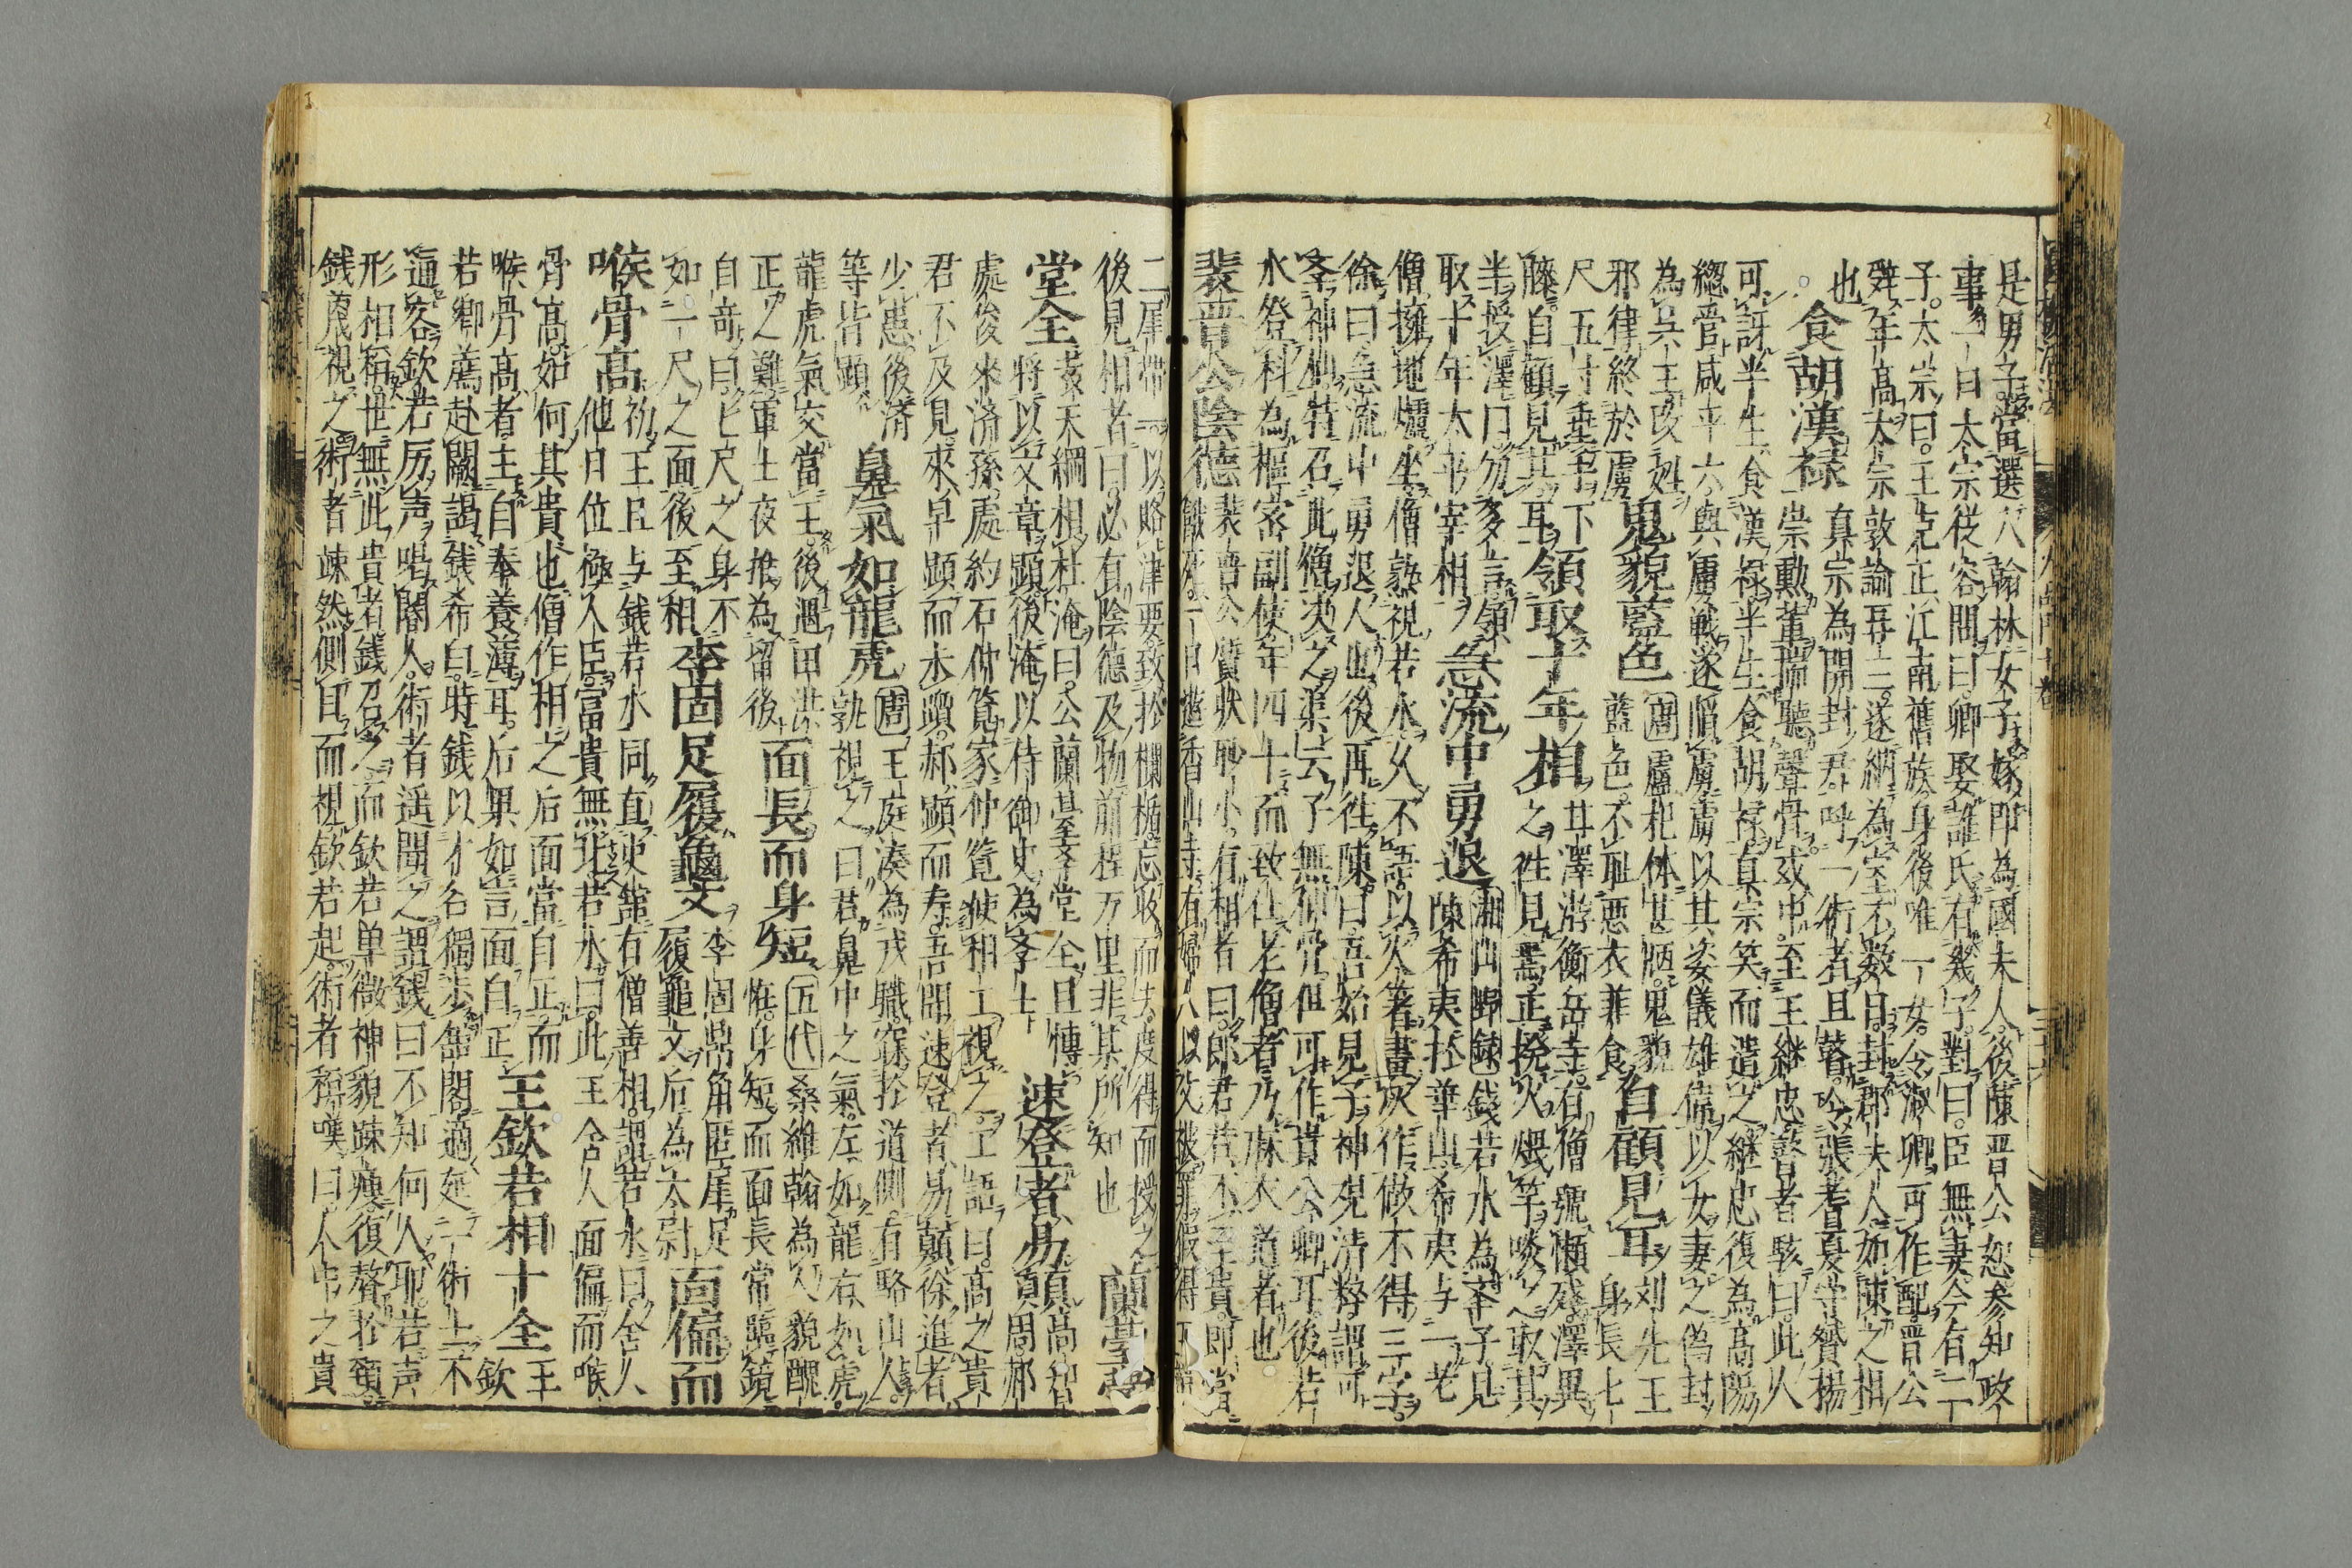 是男子當選入翰林女子嫁即為國夫人後陳晋公恕参知政
事一日太宗従容問曰卿娶誰氏有幾子對曰臣無妻今有二
子太宗曰王克正江南舊族身後唯一女令淑卿可作配晋公
辞年高太宗敦諭再三遂納為室不數日封郡夫人如陳之相
也 食胡漢禄 真宗為開封君呼一術者且瞽令張耆夏守贇楊
崇勲董揣聽聲骨或中至王継忠瞽者駭曰此人
可訝半生食漢禄半生食胡禄真宗笑而遣之継忠復為高陽
總管咸平六與虜戦遂陷虜虜以其姿儀雄偉以女妻之偽封
為呉王改姓 鬼貌藍色 唐盧杞体甚陋鬼貌
邪律終於虜 藍色不耻悪衣菲食 自顧見耳 刘先王
身長七
尺五寸垂手下
膝自顧見其耳 領取十年相 其澤游衡岳寺有僧號懶残澤異
之往見焉正撥火煨芋啖之取其
半授澤曰勿多言領
取十年太平宰相 急流中勇退 湘山歸録 錢若水為挙子見
陳希夷於華山希夷与一老
僧擁地爐坐僧熟視若水久不語以火箸畫灰作做不得三字
徐曰急流中勇退人也後再往陳曰吾始見子神観清粹謂可
学神仙特召此僧决之渠云子無仙骨但可作貴公卿耳後若
水登科為樞密副使年四十而致仕老僧者乃麻衣道者也
裴晋公陰德 裴晋公質状眇小有相者曰郎君若不至貴即當
餓死一日遊香山寺有婦人以父被罪假得玉帶
二犀帶一以賂津要致於欄楯忘取而去度得而授之 蘭薹
後見相者曰必有陰德及物前程万里非某所知也
堂全 蒼天綱相杜淹曰公蘭薹学堂全且慱
将以文章顕後淹以侍御史為学士 速登者易顛 高智
周郝
處俊來済孫處約石仲覧家仲覧使相工視之工語曰高之貴
君不及見來早顕而末躓郝顕而寿吾聞速登者易顛徐進者
少患後済
等皆顕 鼻氣如龍虎 周王庭湊為戎職寐於道側有駱山人
熟視之曰君鼻中之氣左如龍右如虎
龍虎氣交當王後遇田洪
正之難軍士夜推為留後 面長而身短 五代 桑維翰為人貌醜
恠身短而面長常臨鏡
自竒曰七尺之身不
如一尺之面後至相 李固足履龜文 李固鼎角匿犀足
履龜文后為太尉 面偏而
喉骨高 初王旦与錢若水同直史舘有僧善相謂若水曰舎人
他日位極人臣富貴無比若水曰此王舎人面偏而喉
骨高如何其貴也僧作相之后面當自正而
喉骨高者主自奉養薄耳后果如言面自正 王欽若相十全 王
欽
若郷薦赴闕謁錢希白時錢以才名獨歩舘閣適延一術士不
通客欽若厉声唱閽人術者遥聞之謂錢曰不知何人耶若声
形相稱世無此貴者錢召之而欽若单微神貌疎瘦復贅於頸
錢蔑視之術者竦然側目而視欽若起術者稱嘆曰人中之貴